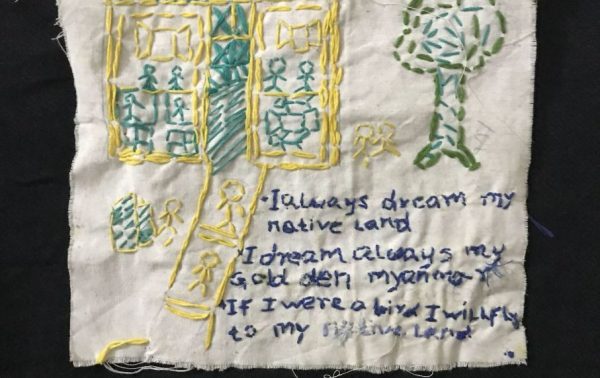 •I always dream my
native land
•I dream always my
Gold den myanmar
•If I were a bird I will fly
to my native land